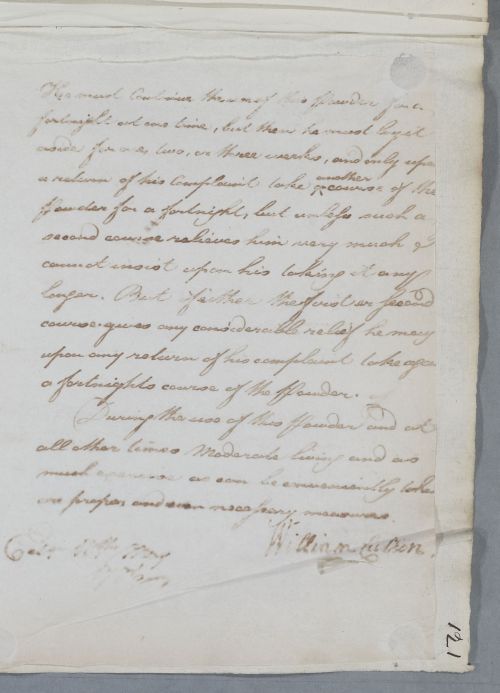 He must Continue the use of this Powder for a
fortnight at one time, but then he must lay it
aside for one, two, or three weeks, and only upon
a return of his Complaint take another course of the
Powder for a fortnight, but unless such a
second course relieves him very much I
cannot insist upon his taking it any
longer. But if either the first or second
course gives any considerable relief he may
upon any return of his complaint take again
a fortnights course of the Powder.
During the use of this Powder and at
all other times Moderate living and as
much exercise as can be conveniently taken
are proper and even necessary measures.
William Cullen.
Edin
171